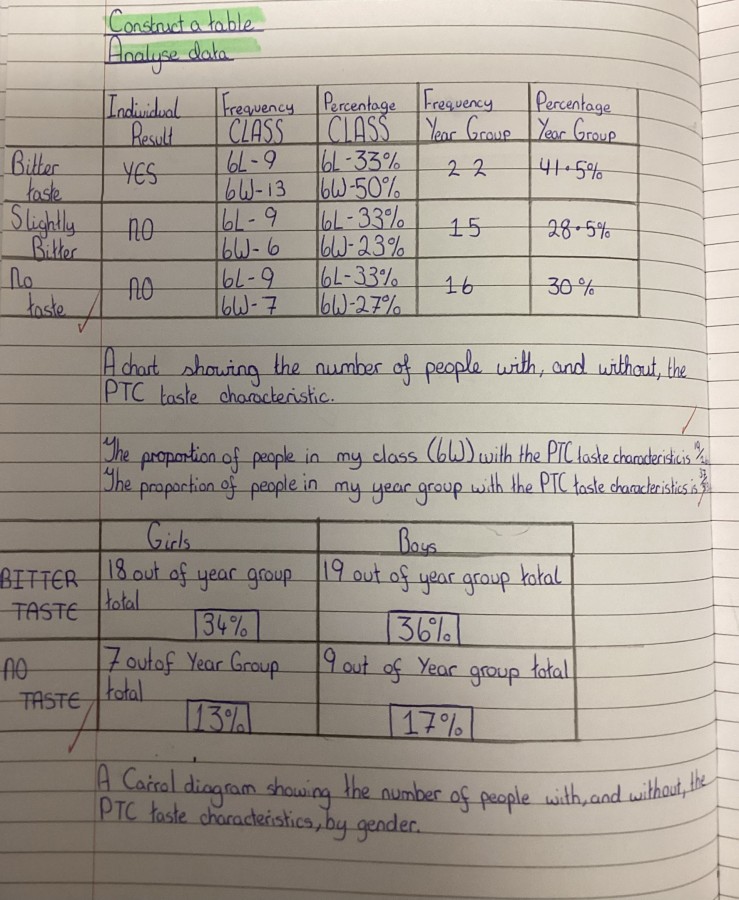 Construct a table
Analyse data
Individual Result Frequency CLASS Percentage CLASS Frequency Year Group Percentage Year Group
Bitter taste YES 6L-9 6W-13 6L-33% 6W-50% 22 41.5%
Slightly Bitter NO 6L-9 6W-6 6L-33% 6W-23% 15 28.5%
No taste NO 6L-9 6W-7 6L-33% 6W-27% 16 30%
A chart showing the number of people with, and without, the
PTC taste characteristic.
The proportion of people in my class (6W) with the PTC taste characteristic is
The proportion of people in my year group with the PTC taste characteristics is
Girls Boys
BITTER TASTE 18 out of year group total 34% 19 out of year group total 36%
NO TASTE 7 out of Year Group total 13% 9 out of Year group total 17%
A Carrol diagram showing the number of people with, and without, the
PTC taste characteristics, by gender.